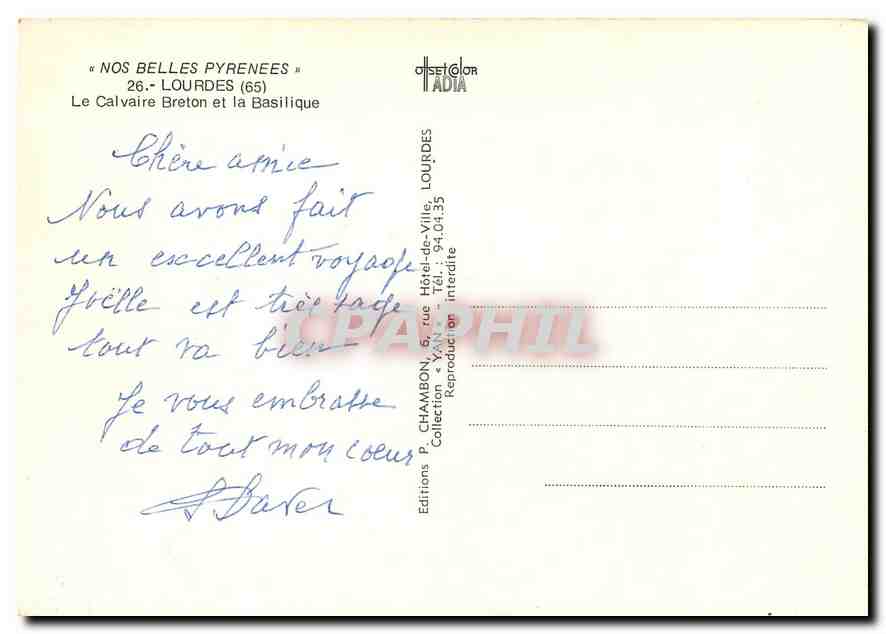 « NOS BELLES PYRENEES »
26.- LOURDES (65)
Le Calvaire Breton et la Basilique
Chère amie
Nous avons fait
un excellent voyage
Joëlle est très sage
tout va bien
Je vous embrasse
de tout mon coeur
OffSET COLOR
ADIA
Editions P. CHAMBON, 6, rue Hôtel-de-Ville, LOURDES
Collection « YAN » - Tél. : 94.04.35
Reproduction interdite
CPAPHIL